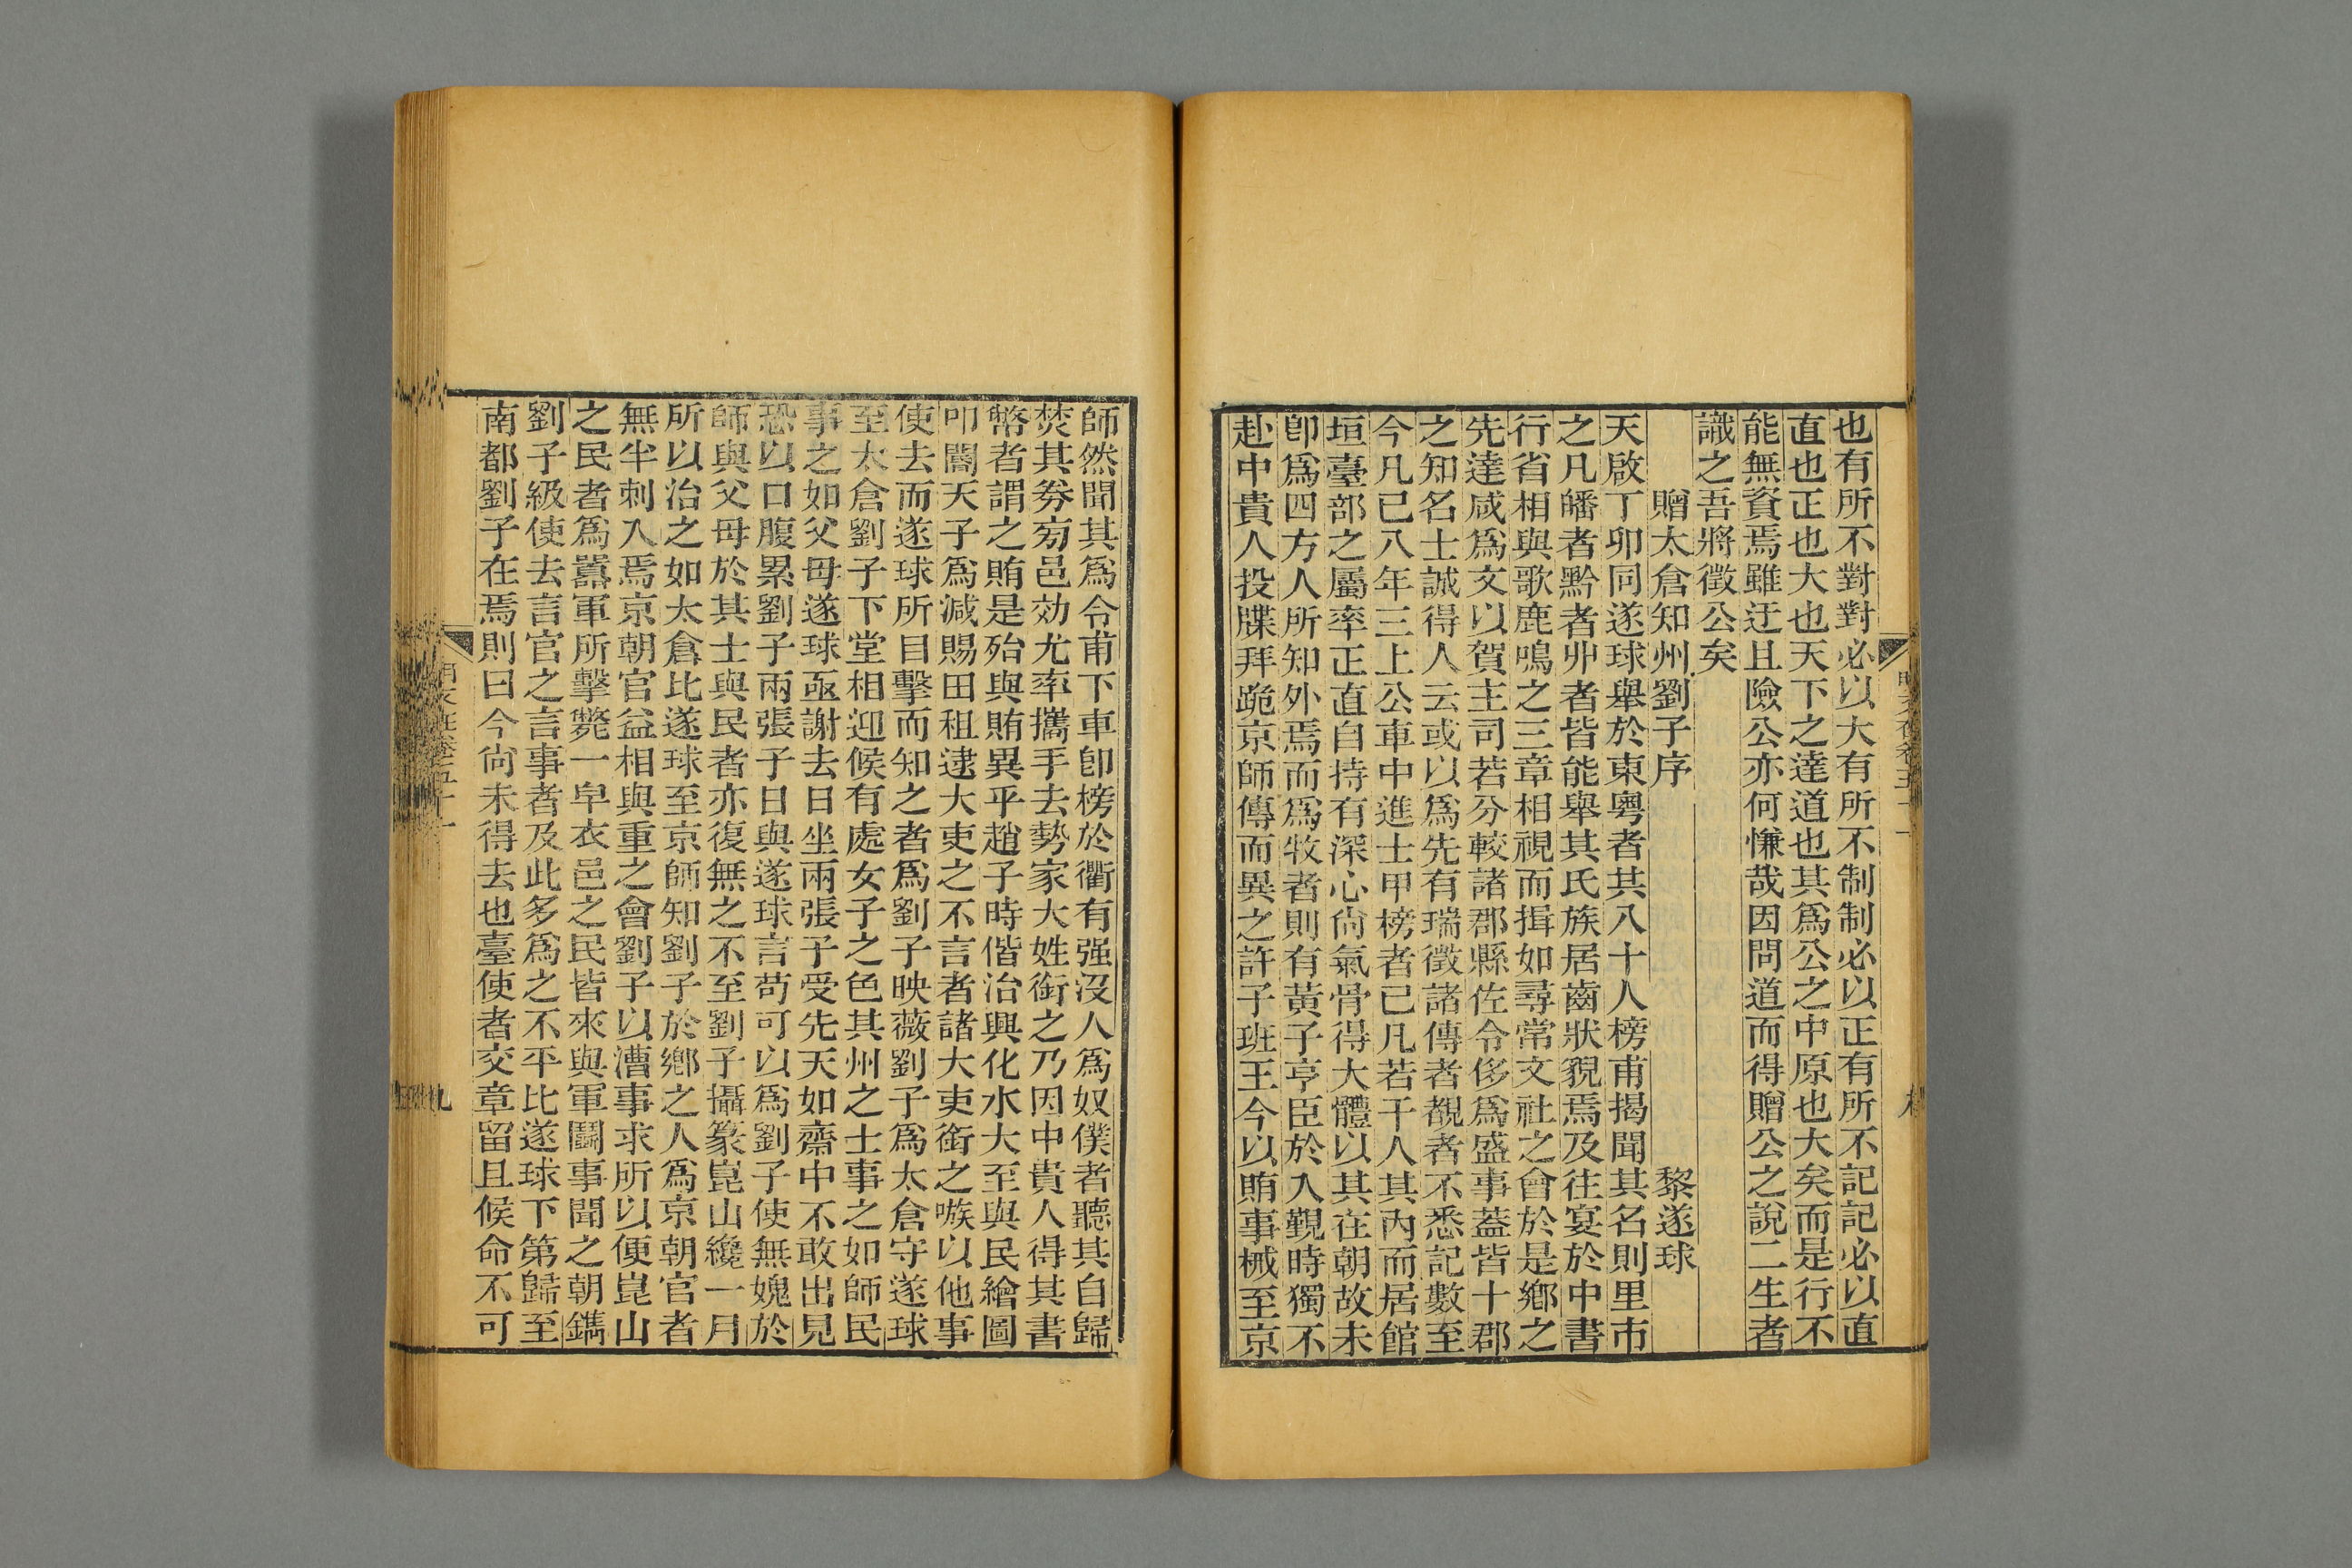 也有所不對對必以大有所不制制必以正有所不記記必以直
直也正也大也天下之達道也其爲公之中原也大矣而是行不
能無資焉雖迂且險公亦何慊哉因問道而得贈公之說二生者
識之吾將徵公矣
贈太倉知州劉子序 黎遂球
天啟丁卯同遂球舉於東粵者其八十人榜甫揭聞其名則里市
之凡皤者黔者丱者皆能舉其氏族居齒狀貌焉及往宴於中書
行省相與歌鹿鳴之三章相視而揖如尋常文社之會於是鄉之
先達咸爲文以賀主司若分較諸郡縣佐令侈爲盛事蓋皆十郡
之知名士誠得人云或以爲先有瑞徵諸傳者覩者不悉記數至
今凡已八年三上公車中進士甲榜者已凡若干人其內而居館
垣臺部之屬率正直自持有深心尙氣骨得大體以其在朝故未
卽爲四方人所知外焉而爲牧者則有黃子亨臣於入覲時獨不
赴中貴人投牒拜跪京師傳而異之許子班王今以賄事械至京
師然聞其爲令甫下車卽榜於衢有强沒人爲奴僕者聽其自歸
焚其券旁邑効尤率攜手去勢家大姓銜之乃因中貴人得其書
幣者謂之賄是殆與賄異乎趙子時偕治興化水大至與民繪圖
叩閽天子爲減賜田租逮大吏之不言者諸大吏銜之嗾以他事
使去而遂球所目擊而知之者爲劉子映薇劉子爲太倉守遂球
至太倉劉子下堂相迎候有處女子之色其州之士事之如師民
事之如父母遂球亟謝去日坐兩張子受先天如齋中不敢出見
恐以口腹累劉子兩張子日與遂球言苟可以爲劉子使無媿於
師與父母於其士與民者亦復無之不至劉子攝篆崑山纔一月
所以治之如太倉比遂球至京師知劉子於鄉之人爲京朝官者
無半刺入焉京朝官益相與重之會劉子以漕事求所以便崑山
之民者爲嚚軍所擊斃一皁衣邑之民皆來與軍鬬事聞之朝鐫
劉子級使去言官之言事者及此多爲之不平比遂球下第歸至
南都劉子在焉則曰今尙未得去也臺使者交章留且候命不可